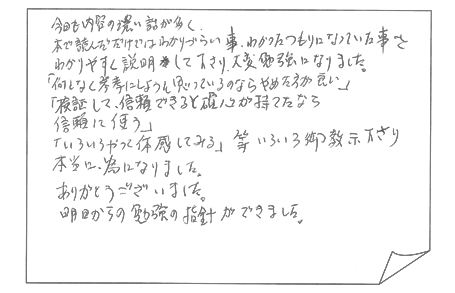 今回も内容の濃い話が多く、
本で読んだだけではわかりづらい事、わかったつもりになっていた事を
わかりやすく説明して下さり、大変勉強になりました。
「何となく参考にしようと思っているのならやめた方が良い」
「検証して、信頼できると確心が持てたなら
信頼して使う」
「いろいろやって体感してみる」等いろいろ御教示下さり
本当に、為になりました。
ありがとうございました。
明日からの勉強の指針ができました。